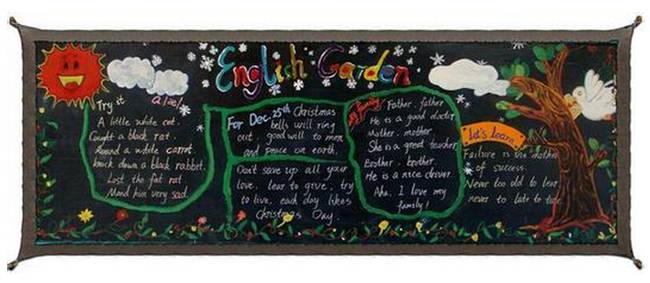 English Garden
Try it
A little white cat.
Caught a black rat.
Around a white carrot
knock down a black rabbit.
Lost the fat rat
Mand him very sad.
For Dec. 25th Christmas
bells will ring
out good will to men
and peace on earth.
Don't save up all your
love, lear to give, try
to live, each day likes
Christmas Day.
my family
Father, father
He is a good doctor
Mother, mother
She is a great teacher
Brother, brother
He is a nice driver.
Aha, I love my
family!
Let's learn
Failure is the mother
of success.
Never too old to lear
never to late to